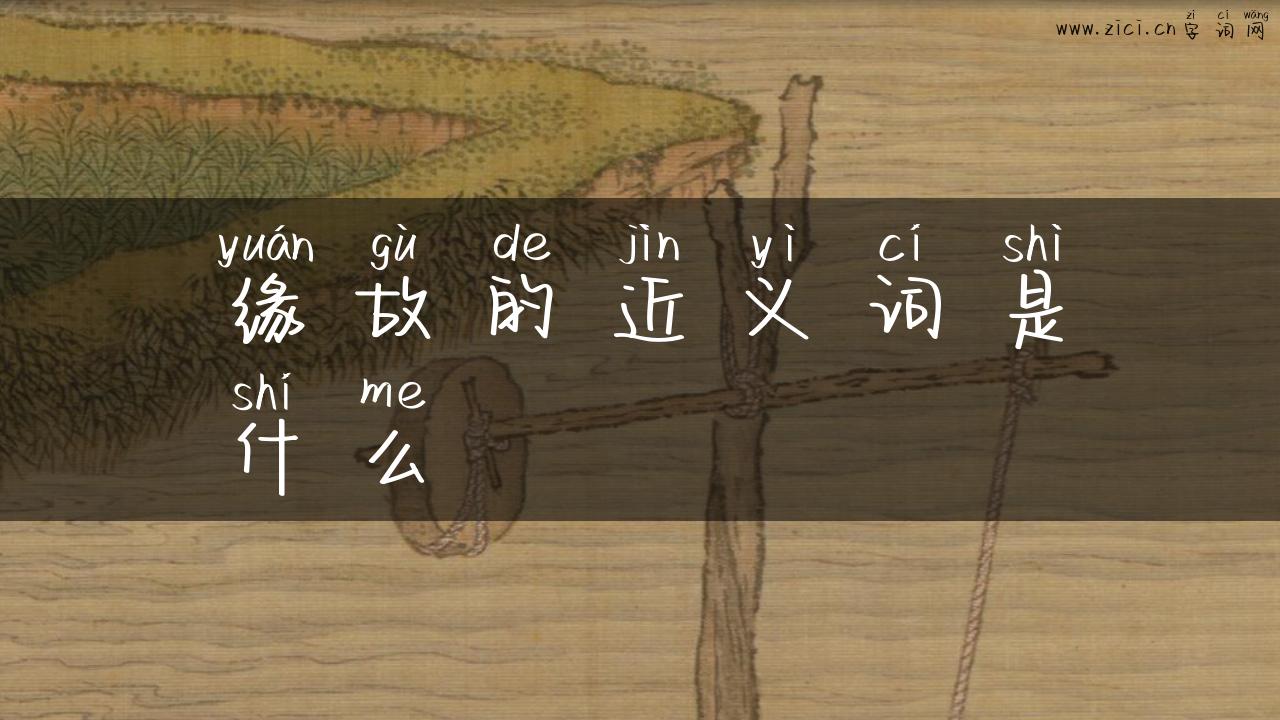 zì cí wǎng
www.zici.cn 字词网
yuán gù de jìn yì cí shì
缘故的近义词是
shí me
什么